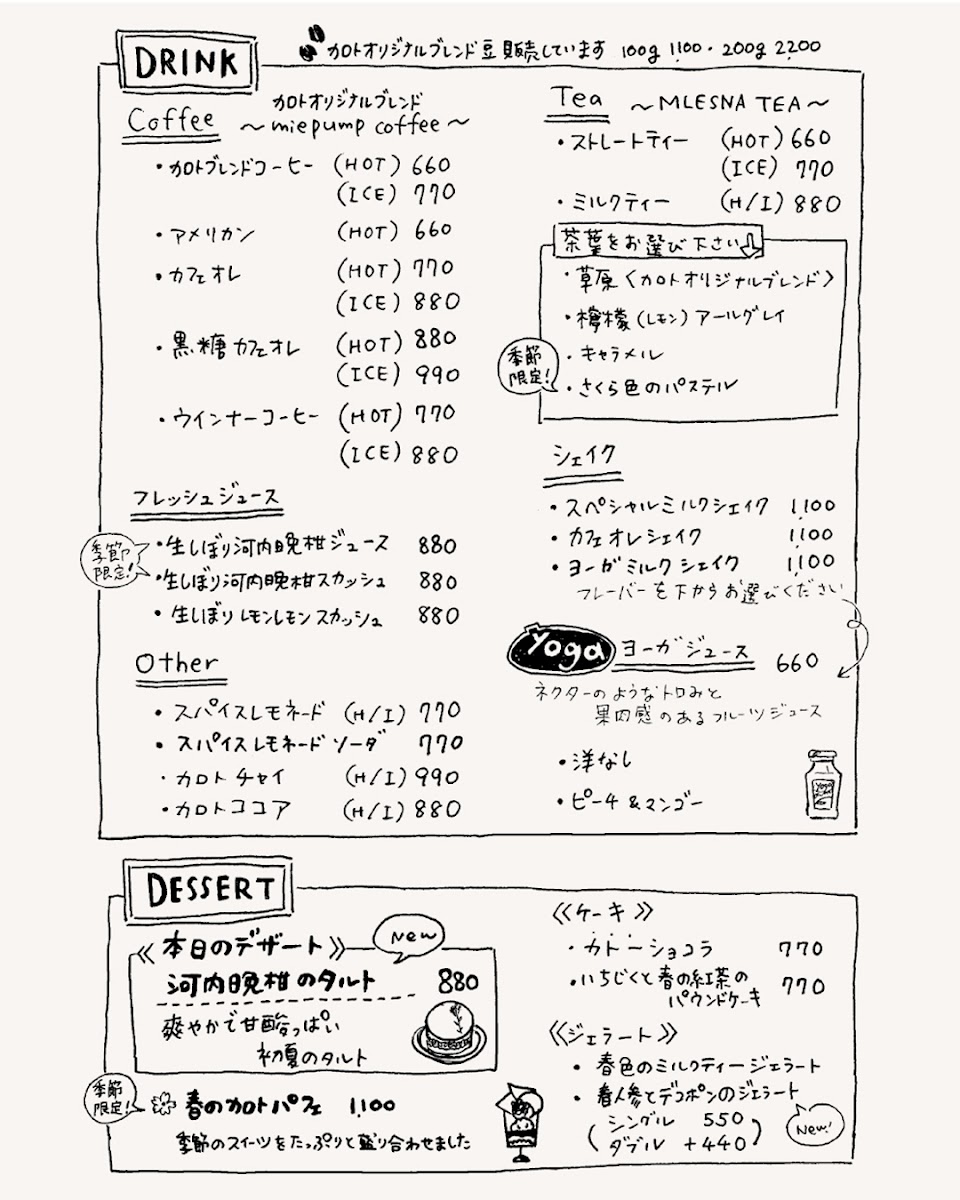 DRINK
カロトオリジナルブレンド豆 販売しています 100g 1,100・200g 2,200
Coffee
カロトオリジナルブレンド
～miepump coffee～
・カロトブレンドコーヒー (HOT) 660
(ICE) 770
・アメリカン (HOT) 660
・カフェオレ (HOT) 770
(ICE) 880
・黒糖カフェオレ (HOT) 880
(ICE) 990
・ウインナーコーヒー (HOT) 770
(ICE) 880
フレッシュジュース
季節
限定!
・生しぼり河内晩柑ジュース 880
・生しぼり河内晩柑スカッシュ 880
・生しぼりレモンレモンスカッシュ 880
Other
・スパイスレモネード (H/I) 770
・スパイスレモネードソーダ 770
・カロトチャイ (H/I) 990
・カロトココア (H/I) 880
Tea ～MLESNA TEA～
・ストレートティー (HOT) 660
(ICE) 770
・ミルクティー (H/I) 880
茶葉をお選び下さい
・草原〈カロトオリジナルブレンド〉
・檸檬(レモン)アールグレイ
・キャラメル
季節
限定!
・さくら色のパステル
シェイク
・スペシャルミルクシェイク 1,100
・カフェオレシェイク 1,100
・ヨーガミルクシェイク 1,100
フレーバーを下からお選びください
Yoga ヨーガジュース 660
ネクターのようなトロみと
果肉感のあるフルーツジュース
・洋なし
・ピーチ&マンゴー
DESSERT
《本日のデザート》
New
河内晩柑のタルト 880
爽やかで甘酸っぱい
初夏のタルト
季節
限定!
春のカロトパフェ 1,100
季節のスイーツをたっぷりと盛り合わせました
《ケーキ》
・ガトーショコラ 770
・いちじくと春の紅茶の
パウンドケーキ 770
《ジェラート》
・春色のミルクティージェラート
・春人参とデコポンのジェラート
New!
(シングル 550
ダブル +440)